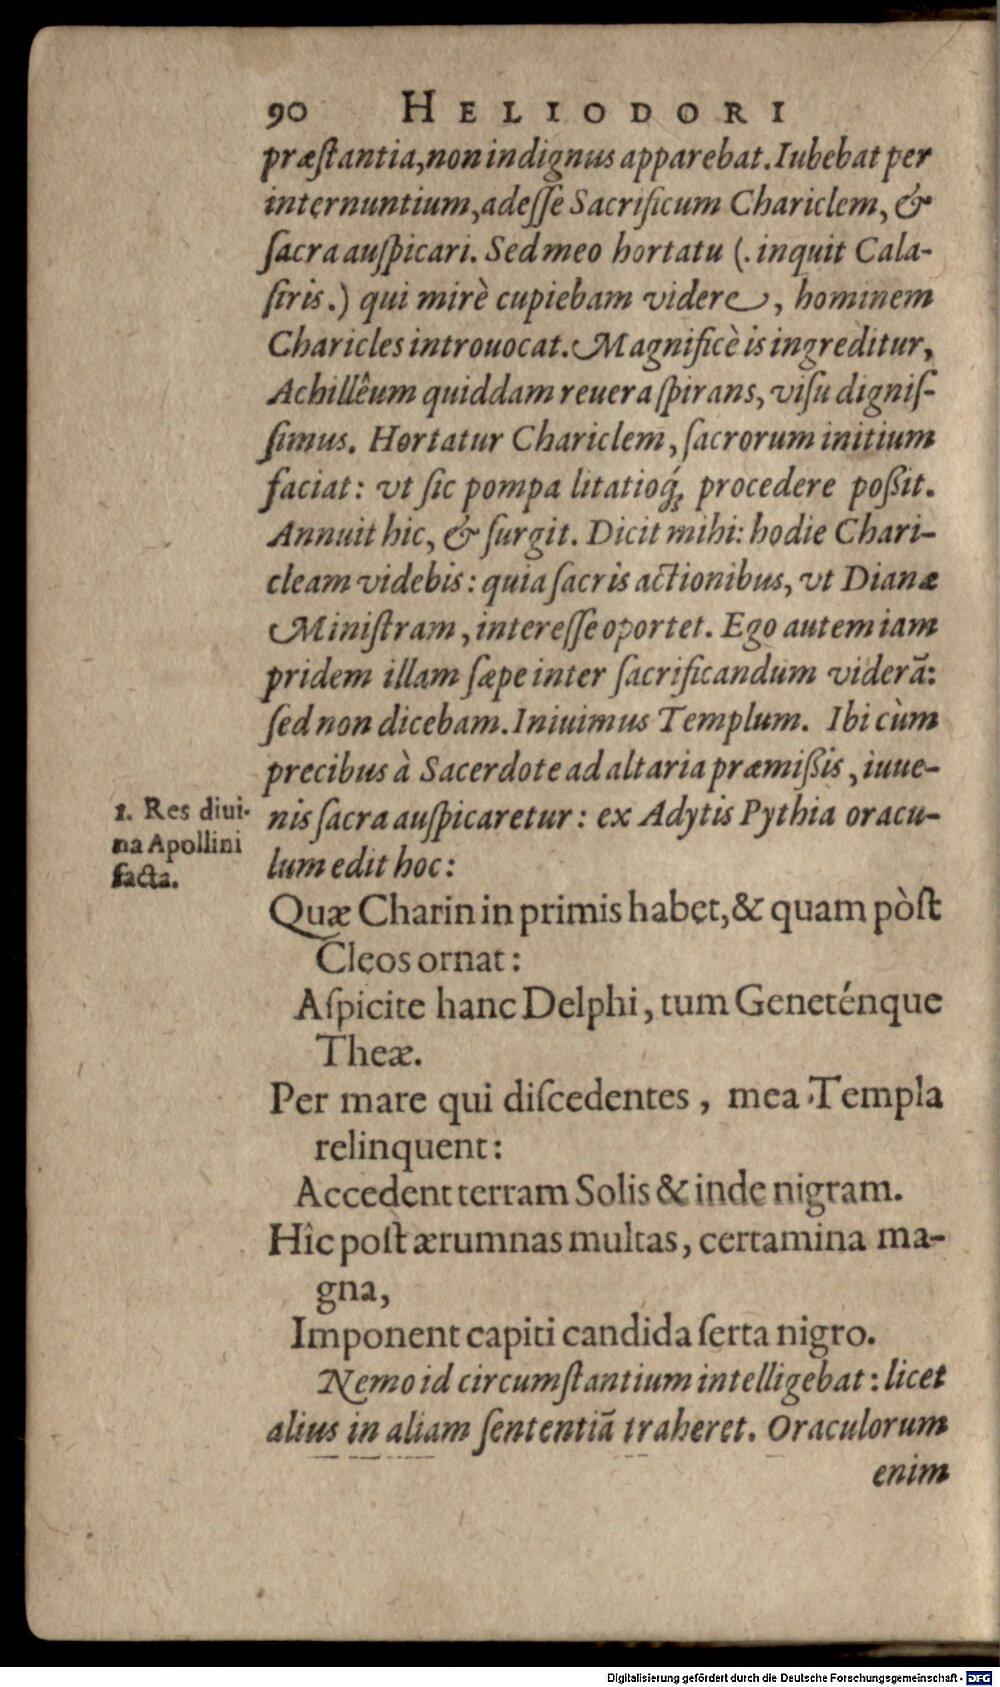 90 HELIODORI
præſtantia, non indignus apparebat. Iubebat per
internuntium, adeſſe Sacrificum Chariclem, &
ſacra auſpicari. Sed meo hortatu (. inquit Cala-
ſiris.) qui mirè cupiebam videre, hominem
Charicles introuocat. Magnificè is ingreditur,
Achillêum quiddam reuera ſpirans, viſu digniſ-
ſimus. Hortatur Chariclem, ſacrorum initium
faciat: vt ſic pompa litatioq́; procedere poßit.
Annuit hic, & ſurgit. Dicit mihi: hodie Chari-
cleam videbis: quia ſacris actionibus, vt Dianæ
Miniſtram, intereſſe oportet. Ego autem iam
pridem illam ſæpe inter ſacrificandum viderã:
ſed non dicebam. Iniuimus Templum. Ibi cùm
precibus à Sacerdote ad altaria præmißis, iuue-
1. Res diui-
na Apollini
facta.
nis ſacra auſpicaretur: ex Adytis Pythia oracu-
lum edit hoc:
Quæ Charin in primis habet, & quam pòſt
Cleos ornat:
Aſpicite hanc Delphi, tum Geneténque
Theæ.
Per mare qui diſcedentes, mea Templa
relinquent:
Accedent terram Solis & inde nigram.
Hîc poſt ærumnas multas, certamina ma-
gna,
Imponent capiti candida ſerta nigro.
Nemo id circumſtantium intelligebat: licet
alius in aliam ſententiã traheret. Oraculorum
enim
Digitalisierung gefördert durch die Deutsche Forschungsgemeinschaft - DFG